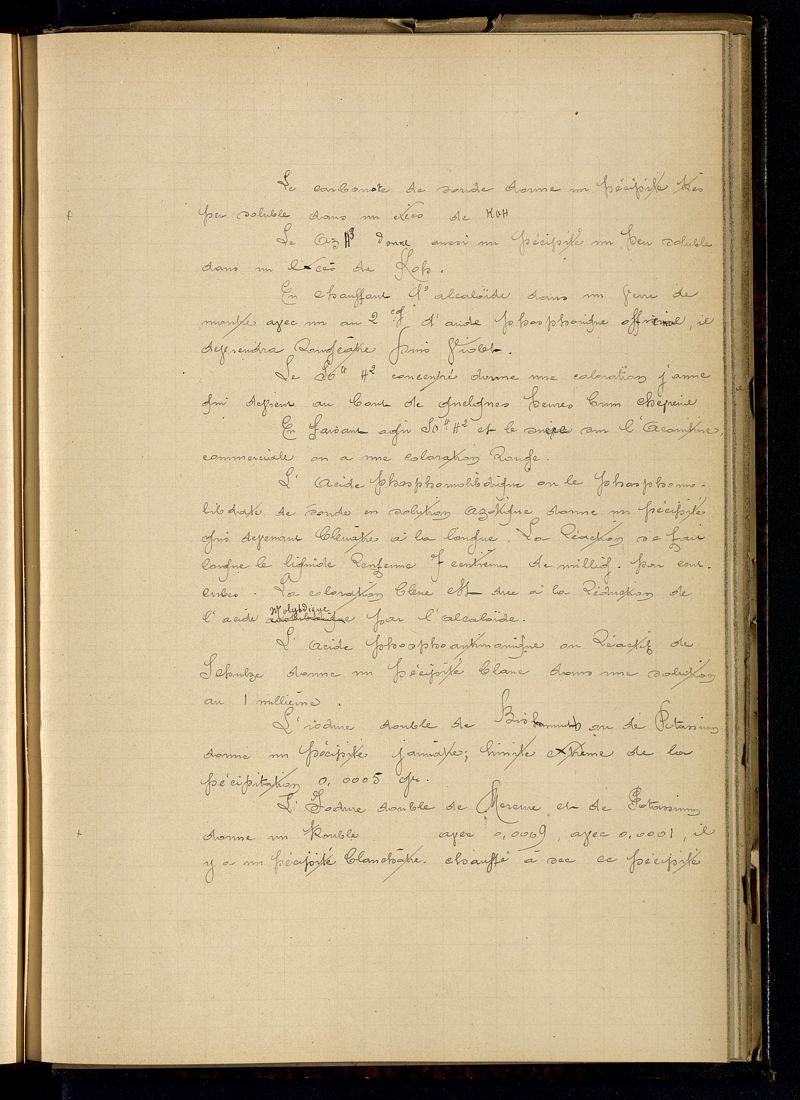 Le carbonate de soude donne un pécipité tès
peu soluble dans un excès de KOH
Le Az H³ donne aussi un pécipité un peu soluble
dans un l'excès de Koh.
En chauffant l'alcaloïde dans un verre de
montre avec un ou 2 cg d'acide phosphorique officinal, il
deviendra Rougeâtre puis Violet.
Le So⁴ H² concentré donne une coloration jaune
qui devient au bout de quelques heures brun
En faisant agir So⁴ H² et le sucre sur l'Aconitine
commerciale on a une coloration Rouge.
L'Acide phosphomolibdique ou le phosphomo-
libdate de soude en solution azotique donne un pécipité
gris devenant bleuâtre à la longue. La Réaction se fait
lorsque le liquide Renferme 7 centièmes de millig. par cent.
cubes. La coloration bleue est due à la Réduction de
l'acide Molybdique par l'alcaloïde.
L'acide phosphoantimonique ou Réactif de
Schulze donne un pécipité blanc dans une solution
au 1 millième.
L'iodure double de Bismuth ou de Potassium
donne un pécipité jaunâtre; limite extrême de la
pécipitation 0,0005 gr.
L'Iodure double de Mercure et de Potassium
donne un trouble avec 0,0009, avec 0,0001, il
y a un pécipité blanchâtre. chauffé à sec ce pécipité